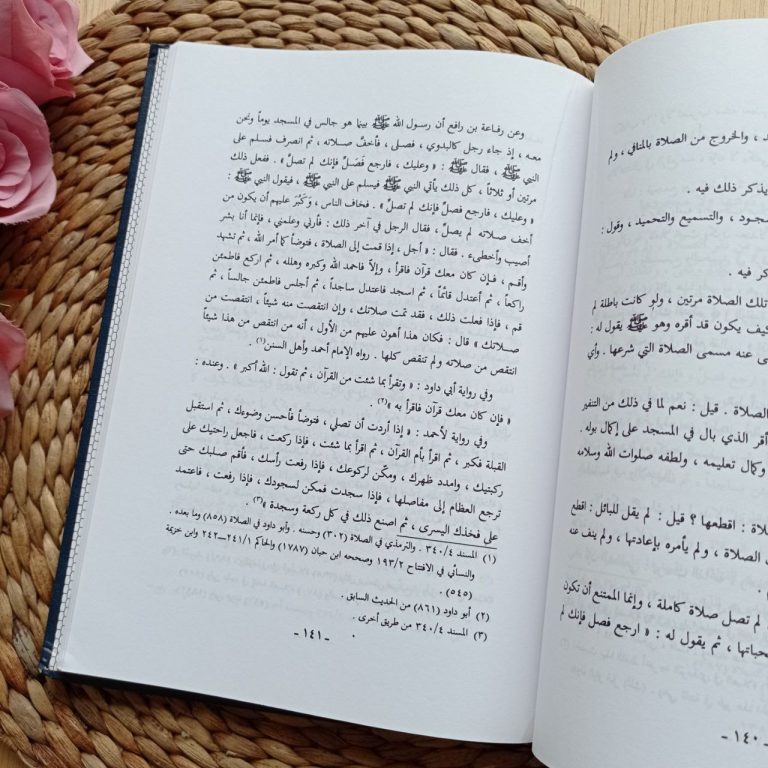 ، والخروج من الصلاة بالمنافي ، ولم
يذكر ذلك فيه .
سجود ، والتسميع والتحميد ، وقول :
كر فيه .
تلك الصلاة مرتين ، ولو كانت باطلة لم
كيف يكون قد أقره وهو ﷺ يقول له :
ى عنه مسمى الصلاة التي شرعها . وأي
الصلاة . قيل : نعم لما في ذلك من التنفير
أقر الذي بال في المسجد على إكمال بوله .
وكمال تعليمه ، ولطفه صلوات الله وسلامه
لاة : اقطعها ؟ قيل : لم يقل للبائل : اقطع
الصلاة ، ولم يأمره بإعادتها ، ولم ينف عنه
لم تصل صلاة كاملة ، وإنما الممتنع أن تكون
حباتها ، ثم يقول له : « ارجع فصل فإنك لم
١٤٠ -
وعن رفاعة بن رافع أن رسول الله ﷺ بينما هو جالس في المسجد يوماً ونحن
معه ، إذ جاء رجل كالبدوي ، فصلى ، فأخفَّ صلاته ، ثم انصرف فسلم على
النبي ﷺ ، فقال ﷺ : « وعليك ، فارجع فَصَلِّ فإنك لم تصلِّ » . ففعل ذلك
مرتين أو ثلاثاً ، كل ذلك يأتي النبي ﷺ فيسلم على النبي ﷺ ، فيقول النبي ﷺ :
« وعليك ، فارجع فصلِّ فإنك لم تصلِّ » . فخاف الناس ، وكَبُرَ عليهم أن يكون من
أخف صلاته لم يصلِّ ، فقال الرجل في آخر ذلك : فأرني وعلمني ، فإنما أنا بشر
أصيب وأخطىء . فقال : « أجل ، إذا قمت إلى الصلاة ، فتوضأ كما أمر الله ، ثم تشهد
وأقم ، فإن كان معك قرآن فاقرأ ، وإلاَّ فاحمد الله وكبره وهلله ، ثم اركع فاطمئن
راكعاً ، ثم أعتدل قائماً ، ثم اسجد فاعتدل ساجداً ، ثم أجلس فاطمئن جالساً ، ثم
قم ، فإذا فعلت ذلك ، فقد تمت صلاتك ، وإن انتقصت منه شيئاً ، انتقصت من
صلاتك » قال : فكان هذا أهون عليهم من الأول ، أنه من انتقص من هذا شيئاً
انتقص من صلاته ولم تنقص كلها . رواه الإمام أحمد وأهل السنن(١) .
وفي رواية أبي داود : « وتقرأ بما شئت من القرآن ، ثم تقول : الله أكبر » . وعنده :
« فإن كان معك قرآن فاقرأ به »(٢) .
وفي رواية لأحمد : « إذا أردت أن تصلي ، فتوضأ فأحسن وضوءك ، ثم استقبل
القبلة فكبر ، ثم اقرأ بأم القرآن ، ثم اقرأ بما شئت ، فإذا ركعت ، فاجعل راحتيك على
ركبتيك ، وامدد ظهرك ، ومكّن لركوعك ، فإذا رفعت رأسك ، فأقم صلبك حتى
ترجع العظام إلى مفاصلها ، فإذا سجدت فمكن لسجودك ، فإذا رفعت ، فاعتمد
على فخذك اليسرى ، ثم اصنع ذلك في كل ركعة وسجدة »(٣) .
(١) المسند ٣٤٠/٤ . والترمذي في الصلاة (٣٠٢) وحسنه . وأبو داود في الصلاة (٨٥٨) وما بعده .
والنسائي في الافتتاح ١٩٣/٢ وصححه ابن حبان (١٧٨٧) والحاكم ٢٤١/١—٢٤٢ وابن خزيمة
(٥٤٥) .
(٢) أبو داود (٨٦١) من الحديث السابق .
(٣) المسند ٣٤٠/٤ من طريق أخرى .
- ١٤١ -